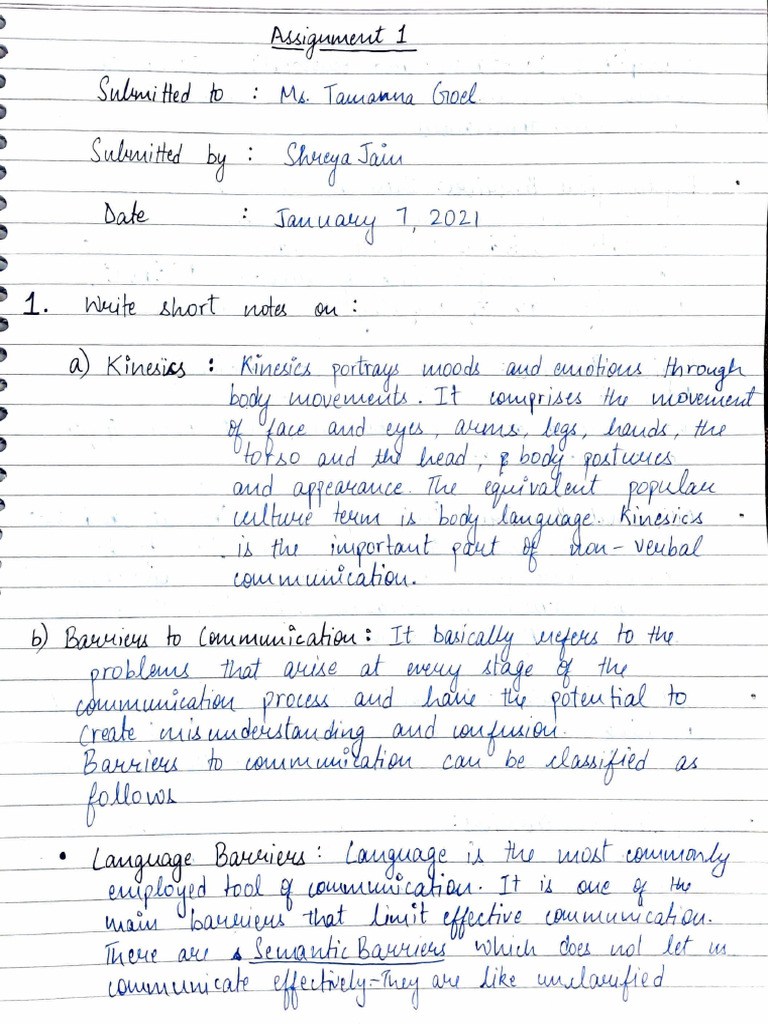 Assignment 1
Submitted to : Ms. Tamanna Goel
Submitted by : Shreya Jain
Date : January 7, 2021
1. Write short notes on :
a) Kinesics : Kinesics portrays moods and emotions through
body movements. It comprises the movement
of face and eyes, arms, legs, hands, the
torso and the head, & body postures
and appearance. The equivalent popular
culture term is body language. Kinesics
is the important part of non-verbal
communication.
b) Barriers to Communication : It basically refers to the
problems that arise at every stage of the
communication process and have the potential to
create misunderstanding and confusion.
Barriers to communication can be classified as
follows
• Language Barriers : Language is the most commonly
employed tool of communication. It is one of the
main barriers that limit effective communication.
There are Semantic Barriers which does not let us
communicate effectively-They are like unclarified